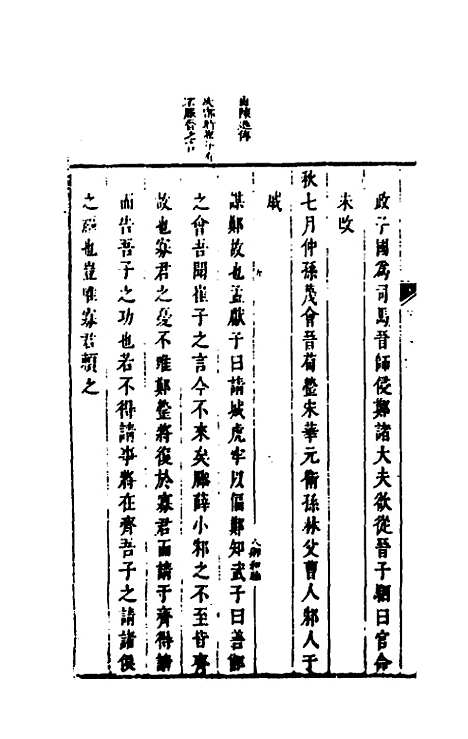 政子國爲司馬晉師侵鄭諸大夫欲從晉子駟曰官命
未改
秋七月仲孫蔑會晉荀罃宋華元衛孫林父曹人邾人于
戚
謀鄭故也孟獻子曰請城虎牢以偪鄭知武子曰善鄫
之會吾聞崔子之言今不來矣滕薛小邾之不至皆齊
故也寡君之憂不唯鄭罃將復於寡君而請于齊得請
而告吾子之功也若不得請事將在齊吾子之請諸侯
之福也豈唯寡君賴之